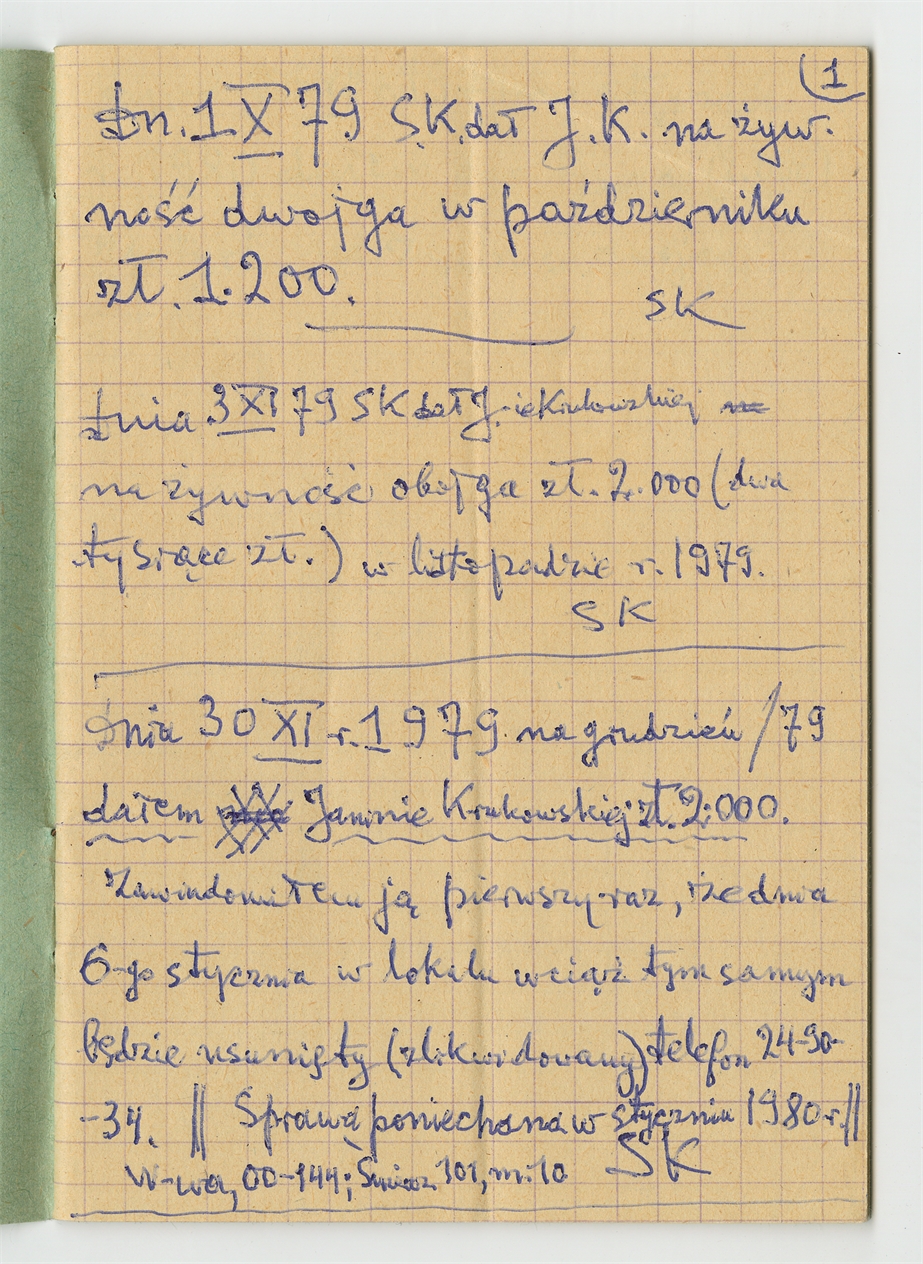 1
Dn. 1 X 79 S.K. dał J.K. na żyw-
ność dwojga w październiku
zł. 1.200.
SK
Dnia 3 XI 79 SK dał J. Krukowskiej
na żywność obojga zł. 2.000 (dwa
tysiące zł.) w listopadzie r. 1979.
SK
Dnia 30 XI r. 1979 na grudzień /79
dałem Janinie Krukowskiej zł. 2.000.
Zawiadomiłem ją pierwszy raz, że dnia
6-go stycznia w lokalu wciąż tym samym
będzie usunięty (zlikwidowany) telefon 24-90-
-34. || Sprawa poniechana w styczniu 1980 r. ||
SK
W-wa, 00-144; 101, m. 10